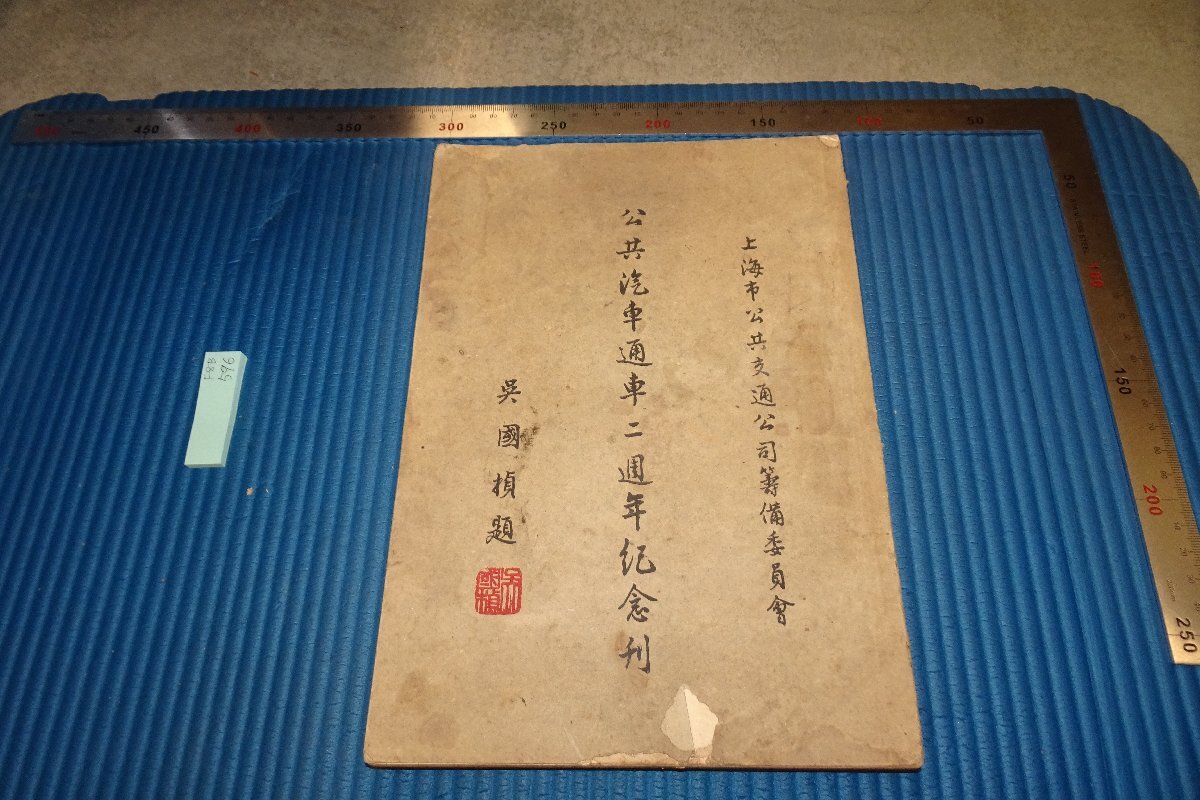 上海市公共交通公司籌備委員會
公共汽車通車二週年紀念刊
吳國楨題
吳國楨
F8B
596
450
400
350
300
250
200
150
100
50
50
100
150
200
250